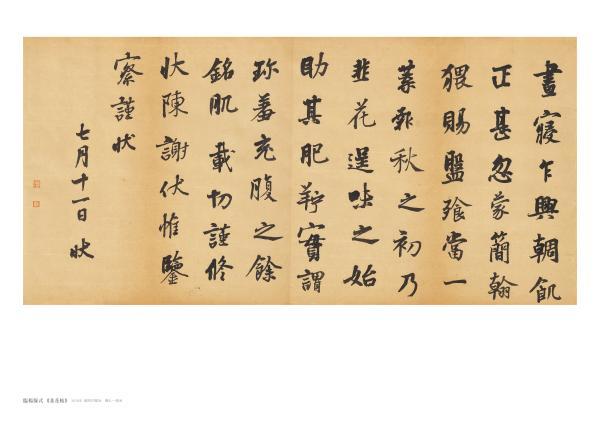 晝寢乍興輖飢
正甚忽蒙簡翰
猥賜盤飱當一
葉報秋之初乃
韭花逞味之始
助其肥羜實謂
珎羞充腹之餘
銘肌載切謹修
狀陳謝伏惟鑒
察謹狀
七月十一日 狀
臨楊凝式《韭花帖》